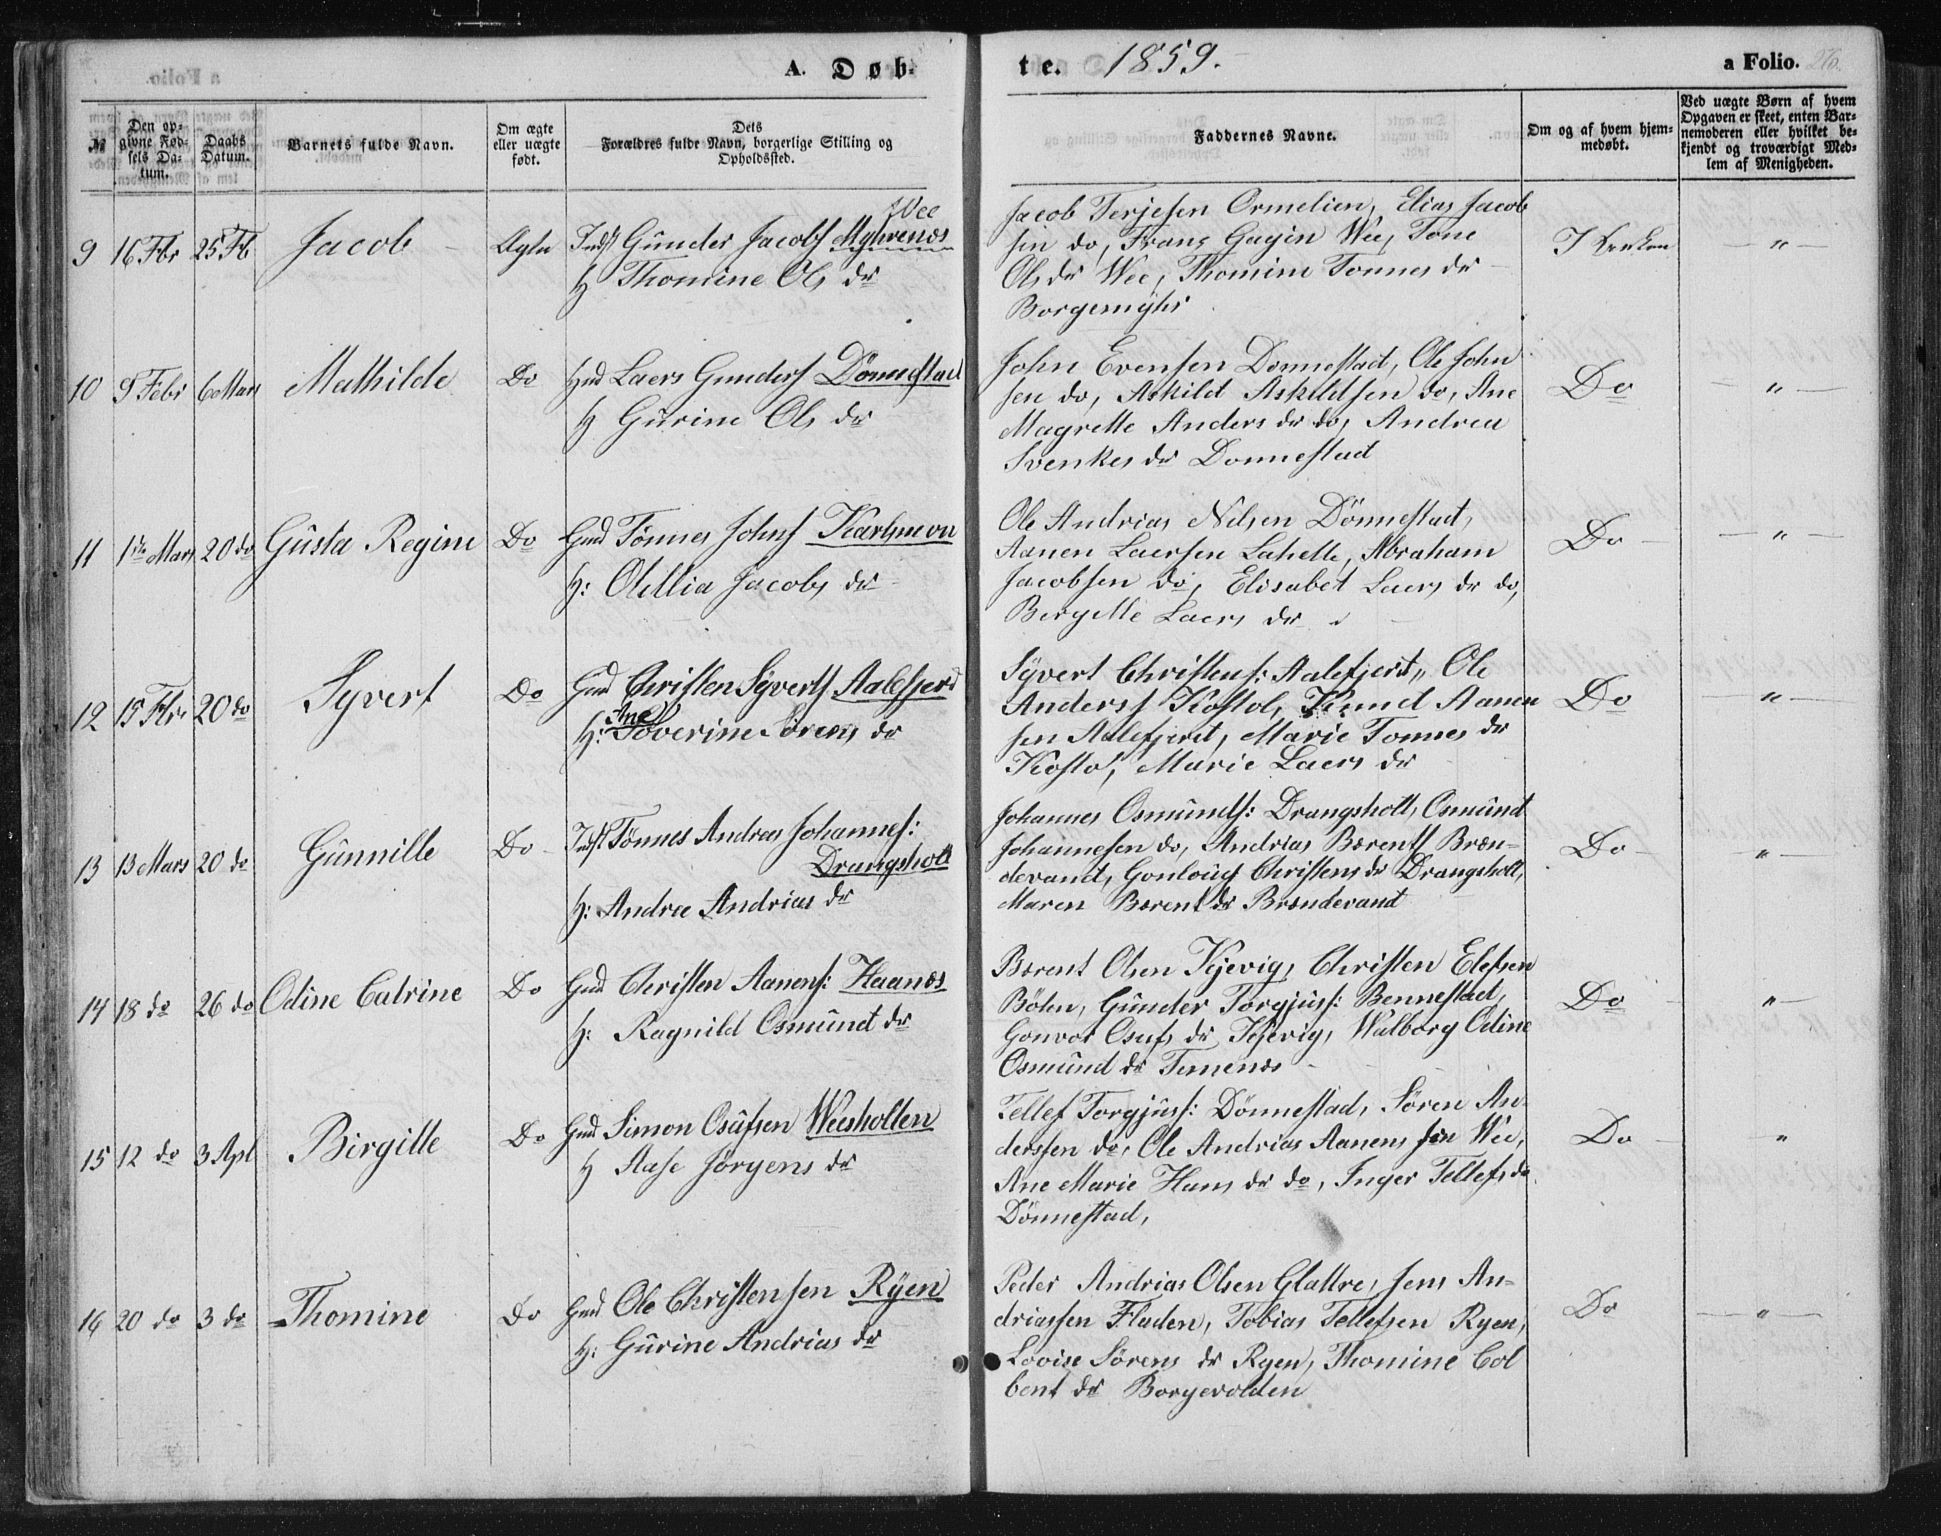 A. Døb-
te. 1859.
a Folio. 26.
№
Den op-
givne Fød-
sels Da-
tum.
Daabs
Datum.
Barnets fulde Navn.
Om ægte
eller uægte
født.
Dets
Forældres fulde Navn, borgerlige Stilling og
Opholdssted.
Faddernes Navne.
Om og af hvem hjem-
medøbt.
Ved uægte Børn af hvem
Opgaven er skeet, enten Bar-
nemoderen eller hvilket be-
kjendt og troværdigt Med-
lem af Menigheden.
9 16 Fbr 25 Fb Jacob Ægte Indst Gunder Jacobs Myhrenæs Wee
H Thomine Ols dr
Jacob Terjesen Ormelien, Elias Jacob
sen do, Frans Gagin Wee, Tone
Ols dr Wee, Thomine Tønnes dr
Borgemyhr
I Kirken — " —
10 9 Febr 6 Mars Mathilde Do Gmd Laers Gunders Dönnestad
H Gurine Ols dr
John Evensen Donnestad, Ole John
sen do, Askild Askildsen do, Ane
Magrette Anders dr do, Andrea
Svenkes dr Donnestad
Do — " —
11 1ste Mars 20 do Gusta Regine Do Gmd Tönnes Johns Karlsmon
H: Olellia Jacobs dr
Ole Andrias Nilsen Dönnestad,
Aanen Laersen Lahelle, Abraham
Jacobsen do, Elisabet Laers dr do,
Bergitte Laers dr
Do — " —
12 15 Fbr 20 do Syvert Do Gmd Christen Syverts Aalefjerd
H: Ane Söverine Sörens dr
Syvert Christens: Aalefjerd, Ole
Anders Kostøl, Knud Aanen
sen Aalefjerd, Marie Tonnes dr
Kostol, Marie Laers dr
Do " —
13 13 Mars 20 do Gunnille Do Indst Tønnes Andreas Johannes:
Drangsholt
H: Andrea Andrias dr
Johannes Osmunds: Drangsholt, Osmund
Johannesen do, Andrias Bærents Bræn-
devand, Gonloug Christens dr Drangsholt,
Maren Bærent dr Brændevand
Do — " —
14 18 do 26 do Odine Catrine Do Gmd Christen Aanens: Haanæs
H: Ragnild Osmund dr
Bærent Olsen Kjevig, Christen Elefsen
Böhn, Gunder Torgjus: Bennestad,
Gonvor Osufs dr Kjevig, Walborg Odine
Osmund dr Temenæs
Do " —
15 12 do 3 Apl Birgitte Do Gmd Simon Osufsen Weesholten
H Aase Jörgens dr
Tellef Torgjus: Dönnestad, Sören An-
derssen do, Ole Andrias Aanens søn Wee,
Ane Marie Hans dr do, Inger Tellefs dr
Dönnestad,
Do "
16 20 do 3 do Thomine Do Gmd Ole Christensen Ryen
H: Gurine Andrias dr
Peder Andrias Olsen Glattre, Jens An-
driassen Fladen, Tobias Tellefsen Ryen,
Lovise Sörens dr Ryen, Thomine Col
bent dr Borgevolden
Do — " —